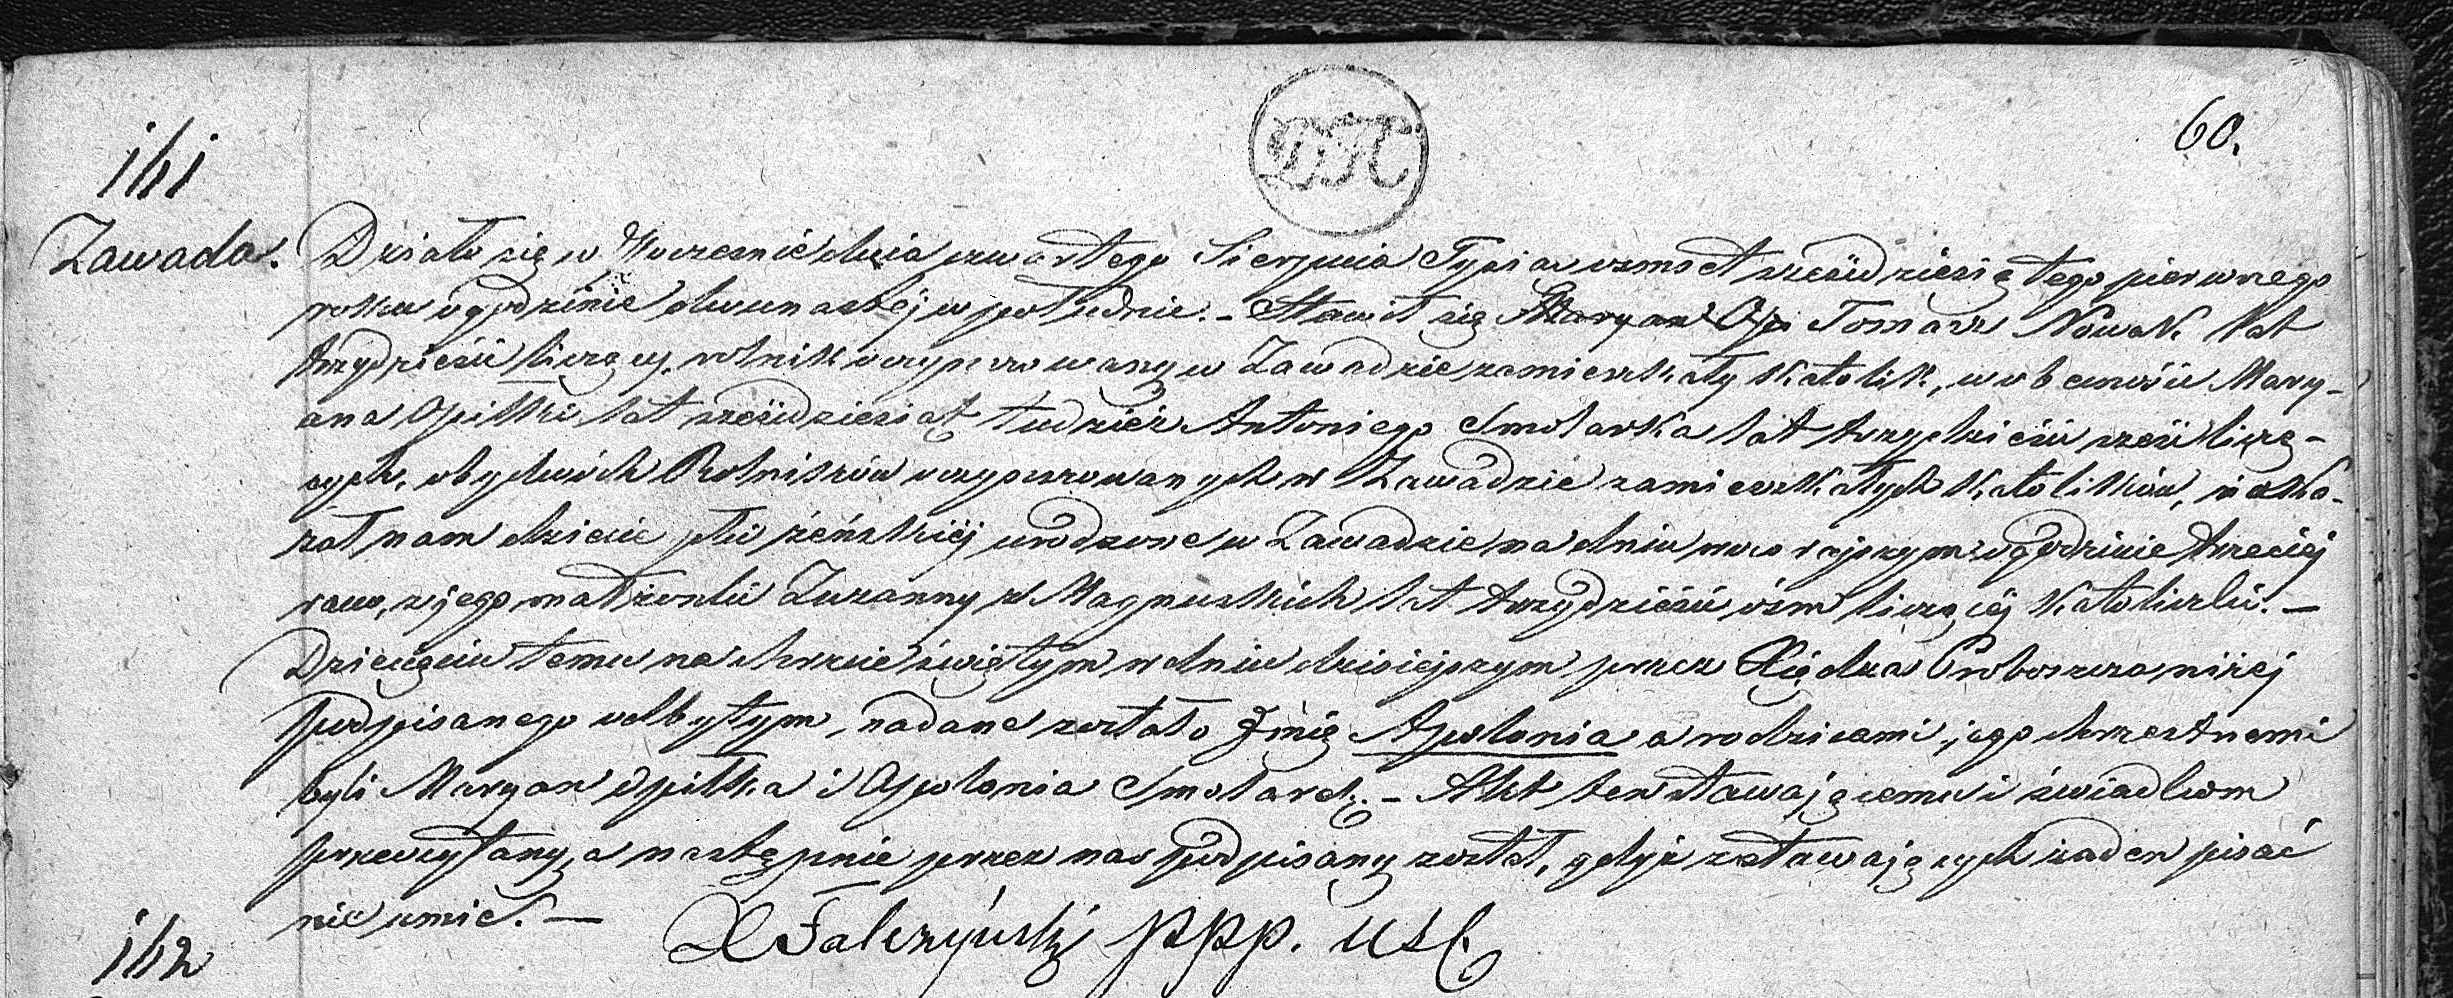 DK
60.
141
Zawada.
Działo się w Kurzeszynie dnia czwartego Sierpnia Tysiac osmset sześćdziesiątego pierwszego
roku o godzinie dwunastéj w południe. – Stawił się Maryan Opi Tomasz Nowak lat
trzydzieści liczący, rolnik oczynszowany w Zawadzie zamieszkały katolik, w obecności Mary-
ana Opiłki lat sześćdziesiąt tudzież Antoniego Smolarka lat trzydzieści sześć liczą-
cych, obydwóch Rolników oczynszowanych w Zawadzie zamieszkałych katolików, i oka-
zał nam dziecie płci żeńskiéj urodzone w Zawadzie na dniu wczorajszym o godzinie trzeciej
rano, z jego małżonki Zuzanny z Magnuskich lat trzydzieści ośm liczącéj katoliczki. –
Dziecięciu temu na chrzcie świętym w dniu dzisiejszym przez Xiędza Proboszcza niżej
podpisanego odbytym, nadane zostało Jmię Apolonia a rodzicami jego chrzestnemi
byli Maryan Opiłka i Apolonia Smolarek. – Akt ten stawającemu i świadkom
przeczytany, a następnie przez nas podpisany został, gdyż z stawających żaden pisać
nie umie. –
X Falczyński PPP. USC.
142